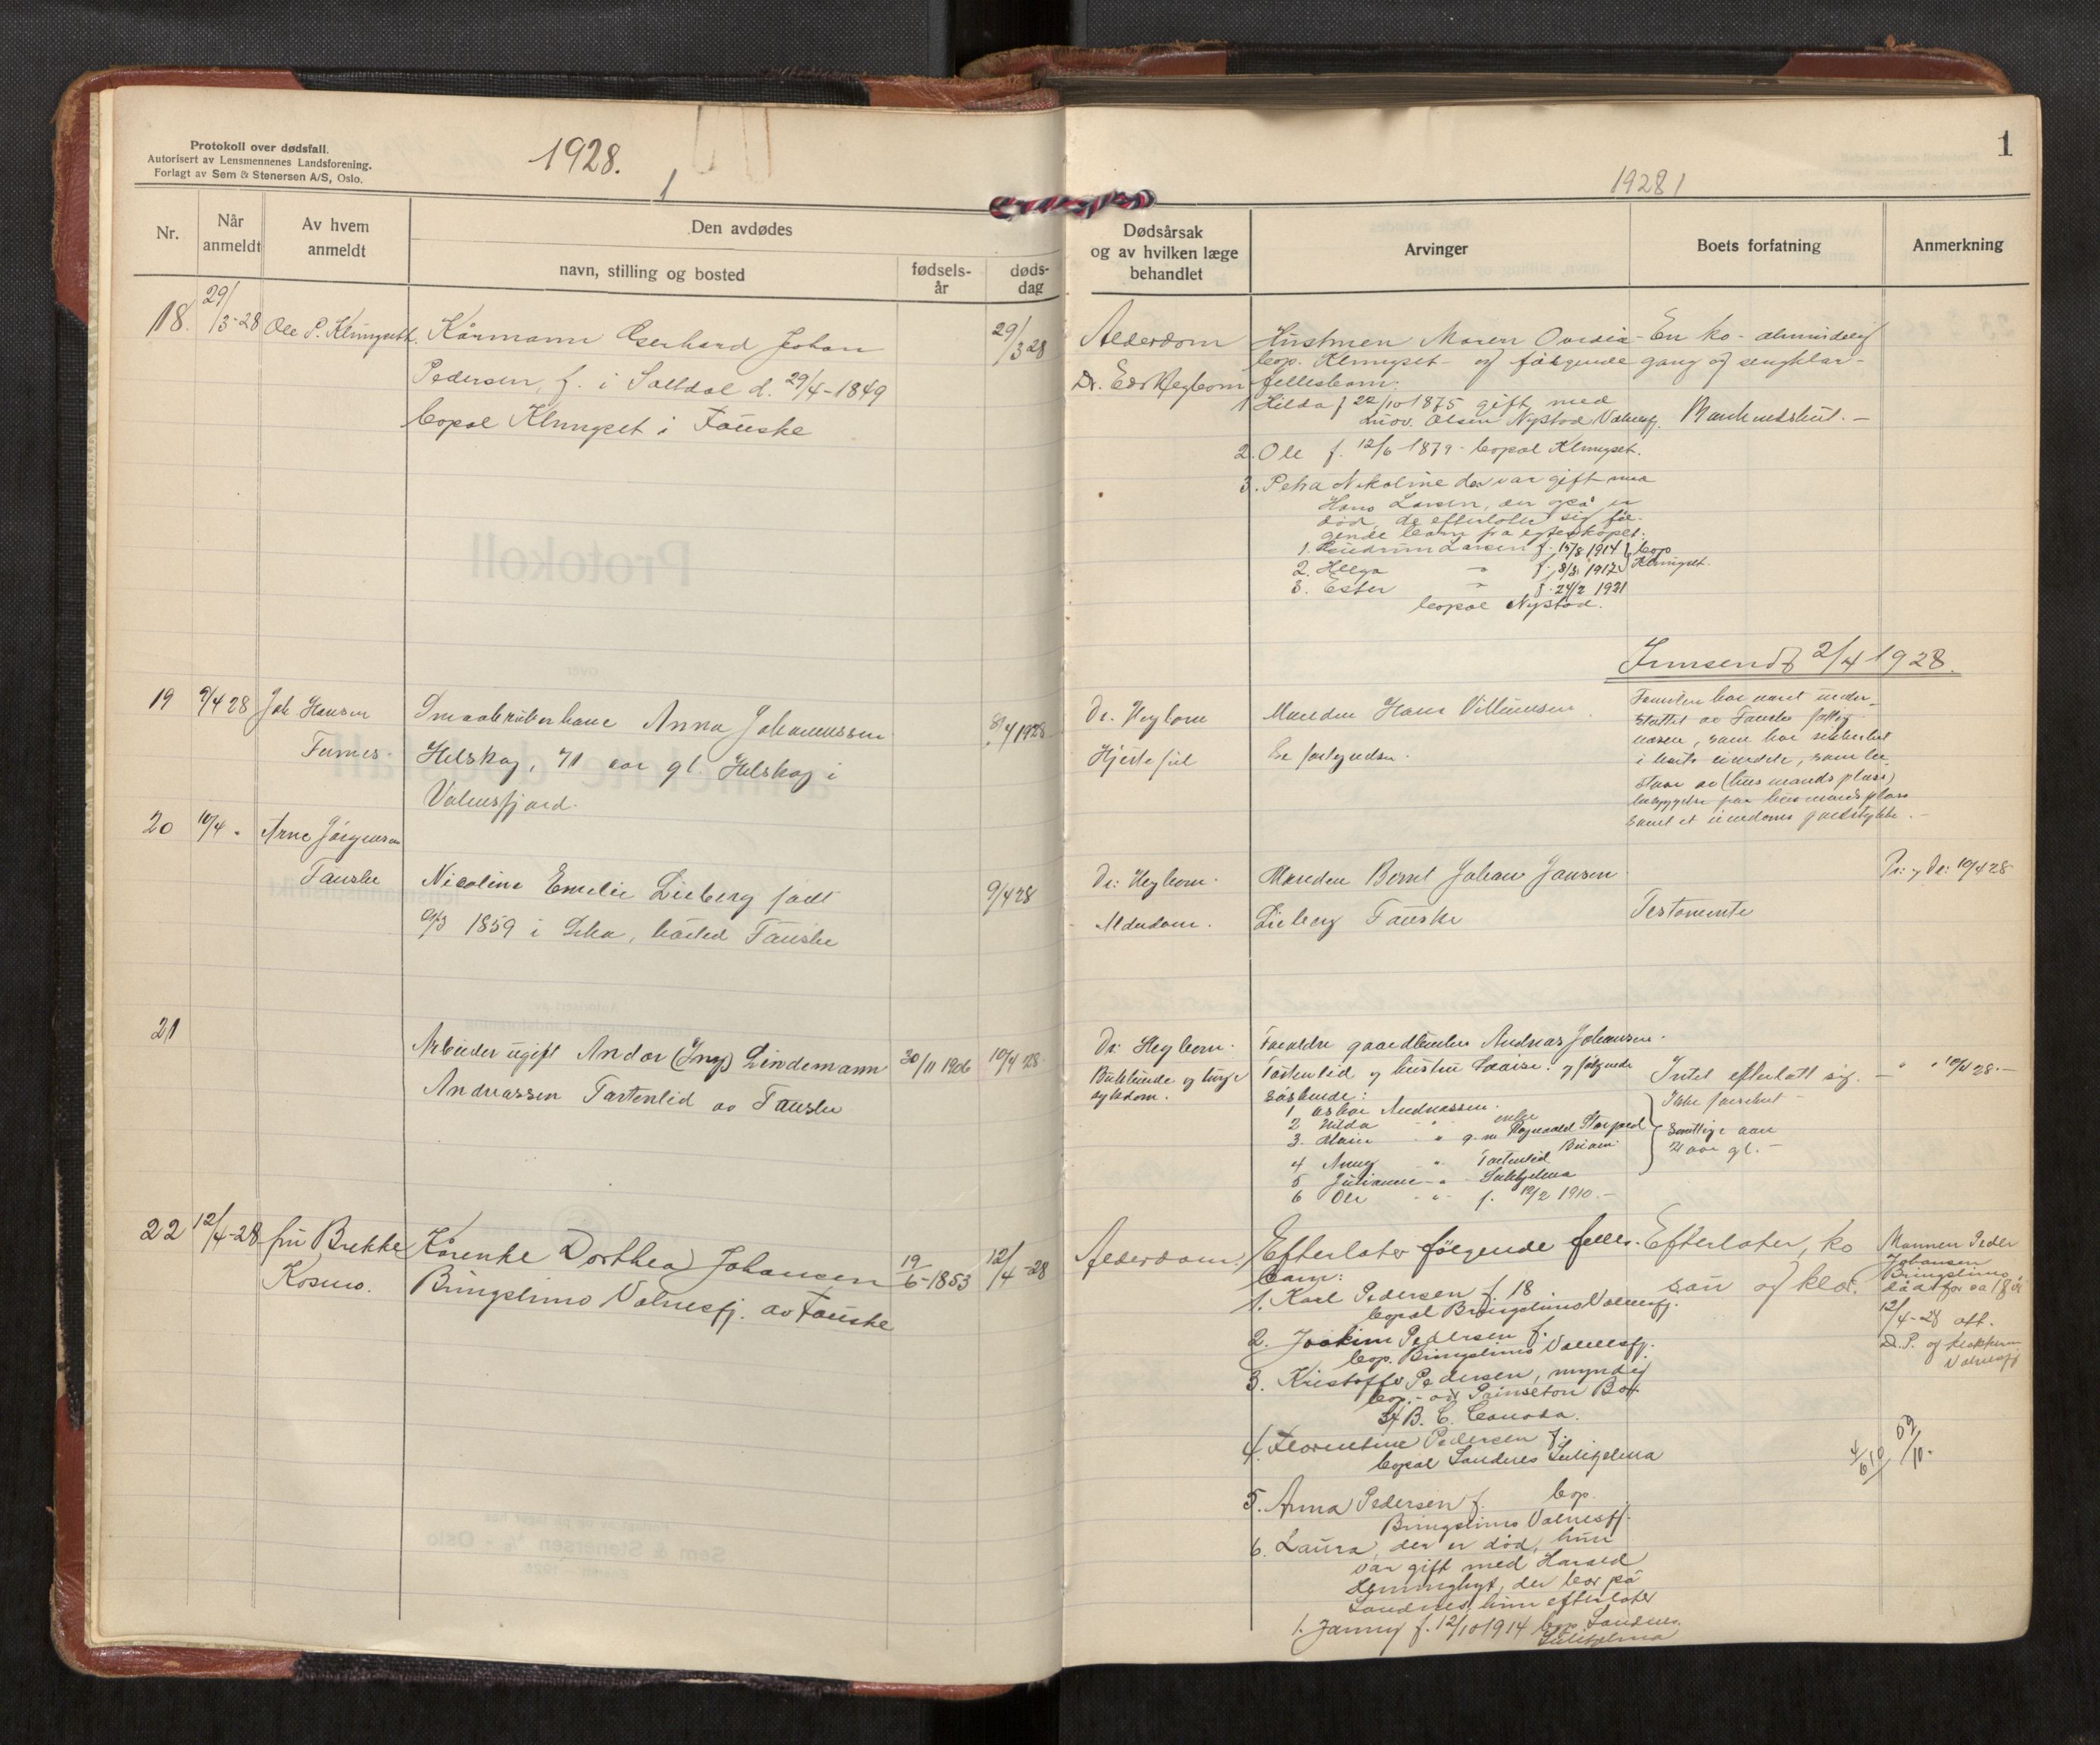 Protokoll over dødsfall.
Autorisert av Lensmennenes Landsforening.
Forlagt av Sem & Stenersen A/S, Oslo.
1928.
1
Nr.
Når anmeldt
Av hvem anmeldt
Den avdødes
navn, stilling og bosted
fødsels-
år
døds-
dag
18. 29/3-28 Ole P. Klungset. Kårmann Gerhard Johan 29/3 28
Pedersen, f. i Saltdal d. 29/4-1849
bopæl Klungset i Fauske
19 9/4 28 Joh Hansen
Furnes.
Smaabrukerkone Anna Johannessen 8/4 1928
Helskog, 71 aar gl. Helskog i
Valnesfjord.
20 10/4 " Arne Jörgensen
Fauske
Nicoline Emelie Lieberg født 9/4 28
1859 i Leka, bosted Fauske
21
Arbeider ugift Andor (Ing) Lindemann 30/11 1906 10/4 28
Andreassen Tortenlid av Fauske
22 12/4-28 fru Brekke
Kosmo.
Kårenke Dorthea Johansen 19/6-1853 12/4-28
Bringslimo Valnesfj. av Fauske
1
1928 1
Dødsårsak
og av hvilken læge
behandlet
Arvinger
Boets forfatning
Anmerkning
Alderdom
Dr. Edv Heybom
Hustruen Maren Ovedia
bop. Klungset - og følgende
fellesbarn:
1 Hilda f 22/10 1875 gift med
Ludv. Olsen Nystad Valnesfj.
2. Ole f. 12/6 1879 - bopæl Klungset.
3. Petra Nikoline der var gift med
Hans Larsen, der også er
død, de efterlater sig føl-
gende barn fra egteskapet:
1. Gudrun Larsen f. 15/8 1914 } bop
2. Helga " f. 8/3 1917 } Klungset.
3. Ester " f. 24/2 1921
bopæl Nystad.
En ko - almindelig
gang og sengklær -
Innsendt 2/4 1928.
Dr. Heybom
Hjertefeil
Manden Hans Villumsen
Familien har været under-
støttet av Fauske fattig-
væsen, som har sikkerhet
i boets eiendele, som be-
staar av (husmandsplass)
bebyggelse paa husmandsplass
samt et
Dr: Heybom.
Alderdom.
Manden Bernt Johan Jansen
Lieberg Fauske
Testamente
10/4 28
Dr. Heybom.
sykdom.
Foreldre gaardbruker Andreas Johansen
Tortenlid og hustru Lovise. og følgende
søskende:
1 Oskar Andreassen.
2 Hilda " " enke
3. " " g. m. Ragnvald
4 " " Tortenlid
5 Julianne " " Sulitjelma
6 Ole " " f. 19/2 1910. -
Intet efterlatt sig. -
Ikke forsikret -
Samtlige over
21 aar gl. -
" " 10/4 28. -
Alderdom
Efterlater følgende felles-
barn:
1. Karl Pedersen f. 18
bopæl Bringslimo Valnesfj.
2. Joakim Pedersen f.
bop. Bringslimo Valnesfj.
3. Kristoffer Pedersen, myndig
bop. - adr Prinseton Box
34 B. C. Canada.
4. Florentine Pedersen f.
bopæl Sandnes Sulitjelma
5. Anna Pedersen f. bop.
Bringslimo Valnesfj.
6. Laura, der er død, hun
var gift med Harald
der bor på
Sandnes, hun efterlater
1. Janny f. 12/10 1914 bop. Sandnes
Sulitjelma
Efterlater, ko
sau og klær.
Mannen Peder
Johansen
Bringslimo,
død for ca 18 år
12/4-28 att.
D. P. og klokkeren
Valnesfj